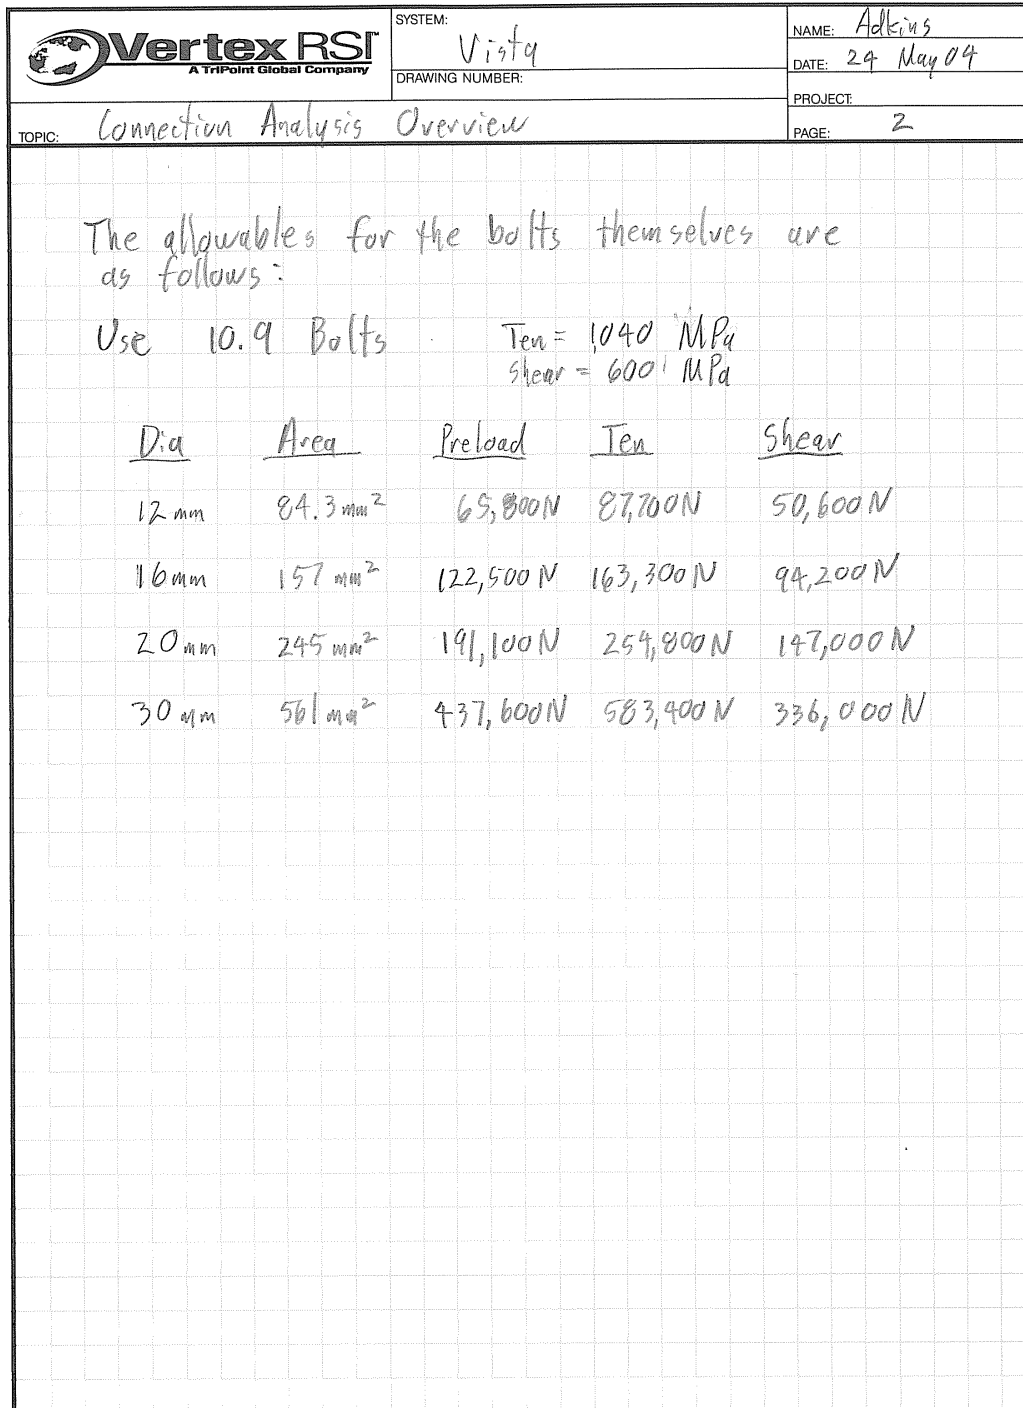 Vertex RSI
A TriPoint Global Company
SYSTEM:
Vista
DRAWING NUMBER:
NAME: Adkins
DATE: 24 May 04
PROJECT:
PAGE: 2
TOPIC: Connection Analysis Overview
The allowables for the bolts themselves are
as follows:
Use 10.9 Bolts Ten = 1040 MPa
Shear = 600 MPa
Dia Area Preload Ten Shear
12 mm 84.3 mm² 65,800N 87,700N 50,600N
16mm 157 mm² 122,500N 163,300N 94,200N
20mm 245 mm² 191,100N 254,800N 147,000N
30 mm 561 mm² 437,600N 583,400N 336,000N